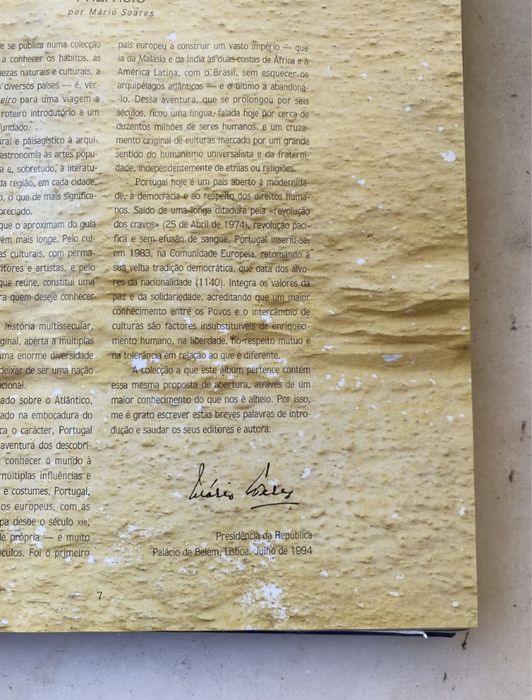 por Mário Soares
e se publica numa colecção
a conhecer os hábitos, as
ezas naturais e culturais, a
diversos países — é, ver-
eiro para uma viagem a
roteiro introdutório a um
fundado.
ral e paisagístico à arqui-
astronomia às artes popu-
a e, sobretudo, à literatu-
da região, em cada cidade,
o, o que de mais significa-
preciado.
que o aproximam do guia
ém mais longe. Pelo cui-
as culturais, com perma-
ritores e artistas, e pelo
que reúne, constitui uma
ra quem deseje conhecer
história multissecular,
ginal, aberta a múltiplas
uma enorme diversidade
deixar de ser uma nação
cional.
ado sobre o Atlântico,
ado na embocadura do
ca o carácter, Portugal
aventura dos descobri-
conhecer o mundo à
múltiplas influências e
e costumes, Portugal,
os europeus, com as
pa desde o século XIII,
de própria — e muito
culos. Foi o primeiro
país europeu a construir um vasto império — que
ia da Malásia e da Índia às duas costas de África e à
América Latina, com o Brasil, sem esquecer os
arquipélagos atlânticos — e o último a abandoná-
-lo. Dessa aventura, que se prolongou por seis
séculos, ficou uma língua, falada hoje por cerca de
duzentos milhões de seres humanos, e um cruza-
mento original de culturas marcado por um grande
sentido do humanismo universalista e da fraterni-
dade, independentemente de etnias ou religiões.
Portugal hoje é um país aberto à modernida-
de, à democracia e ao respeito dos direitos huma-
nos. Saído de uma longa ditadura pela «revolução
dos cravos» (25 de Abril de 1974), revolução pací-
fica e sem efusão de sangue, Portugal inseriu-se,
em 1983, na Comunidade Europeia, retomando a
sua velha tradição democrática, que data dos alvo-
res da nacionalidade (1140). Integra os valores da
paz e da solidariedade, acreditando que um maior
conhecimento entre os Povos e o intercâmbio de
culturas são factores insubstituíveis de enriqueci-
mento humano, na liberdade, no respeito mútuo e
na tolerância em relação ao que é diferente.
A colecção a que este álbum pertence contém
essa mesma proposta de abertura, através de um
maior conhecimento do que nos é alheio. Por isso,
me é grato escrever estas breves palavras de intro-
dução e saudar os seus editores e autora.
Mário Soares
Presidência da República
Palácio de Belém, Lisboa, Julho de 1994
7